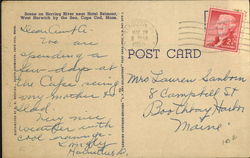 Scene on Herring River near Hotel Belmont,
West Harwich by the Sea, Cape Cod, Mass.
POST CARD
We are
spending a
few days at
the Cape seeing
my mother &
dad.
Very nice
weather with
cool evenings.
Mrs Lauren Sanborn
8 Campbell St
Boothbay Harbor
Maine
2¢